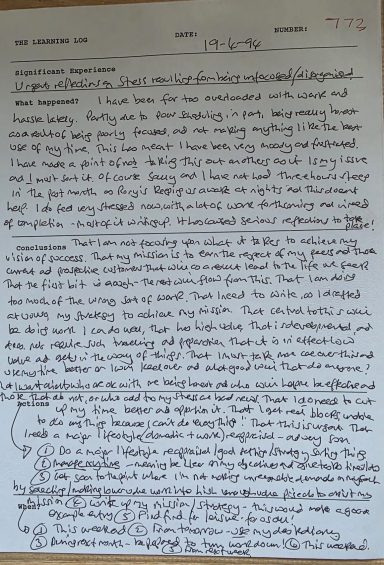 773
THE LEARNING LOG DATE: 19-6-94 NUMBER:
Significant Experience
Urgent reflections on stress resulting from being unfocused/disorganised
What happened? I have been far too overloaded with work and
hassle lately. Partly due to poor scheduling, in part, being really honest
as a result of being poorly focused, and not making anything like the best
use of my time. This has meant I have been very moody and frustrated.
I have made a point of not taking this out on others as it is my issue
and I must sort it. Of course Sally and I have not had three hours sleep
in the past month as Rory is keeping us awake at nights and this doesnt
help. I do feel very stressed now, with a lot of work forthcoming and in need
of completion - most of it writing up. It has caused serious reflections to take
place!
Conclusions That I am not focusing upon what it takes to achieve my
vision of success. That my mission is to earn the respect of my peers and those
current and prospective customers that will as a result lead to the life we
That the first bit is enough - the rest will flow from this. That I am doing
too much of the wrong sort of work. That I need to write, as I drafted
my strategy to achieve my mission. That central to this will
be doing work I can do well, that has high value, that is developmental, and
does not require such travelling and preparation that it is in effect low
value and gets in the way of things. That I must take more care over this and
use my time better or I will and what good will that do anyone?
be honest and who will help me be effective and
those that do not, or who add to my stress as bad news. That I do need to cut
Actions up my time better and apportion it. That I get real blocks unable
to do anything because I can't do everything!! That this is urgent. That
I need a major lifestyle/domestic + work reappraisal - and very soon
① Do a major lifestyle reappraisal/goal setting/strategy setting thing
② - meaning be clear on my objectives and time
③ Get soon to the point where I'm not making unreasonable demands on myself
by
mission ④ Write up my mission/strategy - this would make a good
When? example entry ⑤ Find time to leisure - for us all!
① This weekend ② From tomorrow - use my desk diary
③ During next month - be prepared to turn work down! ④ This weekend.
⑤ From next week